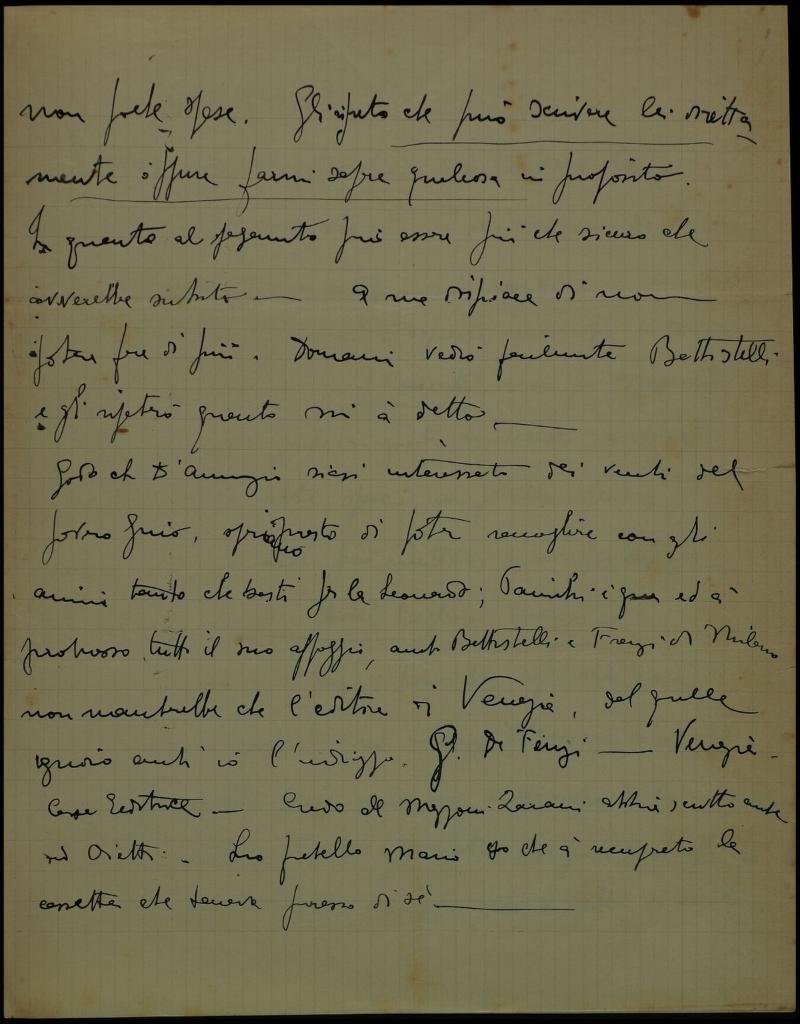 non forte spese. Gli ripeto che può scrivere lei diretta
mente oppure farmi sapere qualcosa in proposito.
In quanto al pagamento può essere più che sicuro che
avverrebbe subito — A me dispiace di non
poter fare di più. Domani vedrò facilmente Battistelli
e gli ripeterò quanto mi à detto, —
Godo ch D'Annunzio siasi interessato dei venti del
povero Guio, di poter raccogliere con gli
amini tanto che basti per la Leonardo; è ed à
promesso tutto il suo appoggio, anch Battistelli e Franzi di Milano
non mancherebbe che l'editore di Venezia, del quale
ignoro anch' io l'indirizzo. G. De Fenzi — Venezia -
Casa Editrice — Credo che Mazzoni Zarani abbia scritto anche
ad Ojetti. - Suo fratello Mario so che à recuperato la
cassetta che teneva presso di sé —